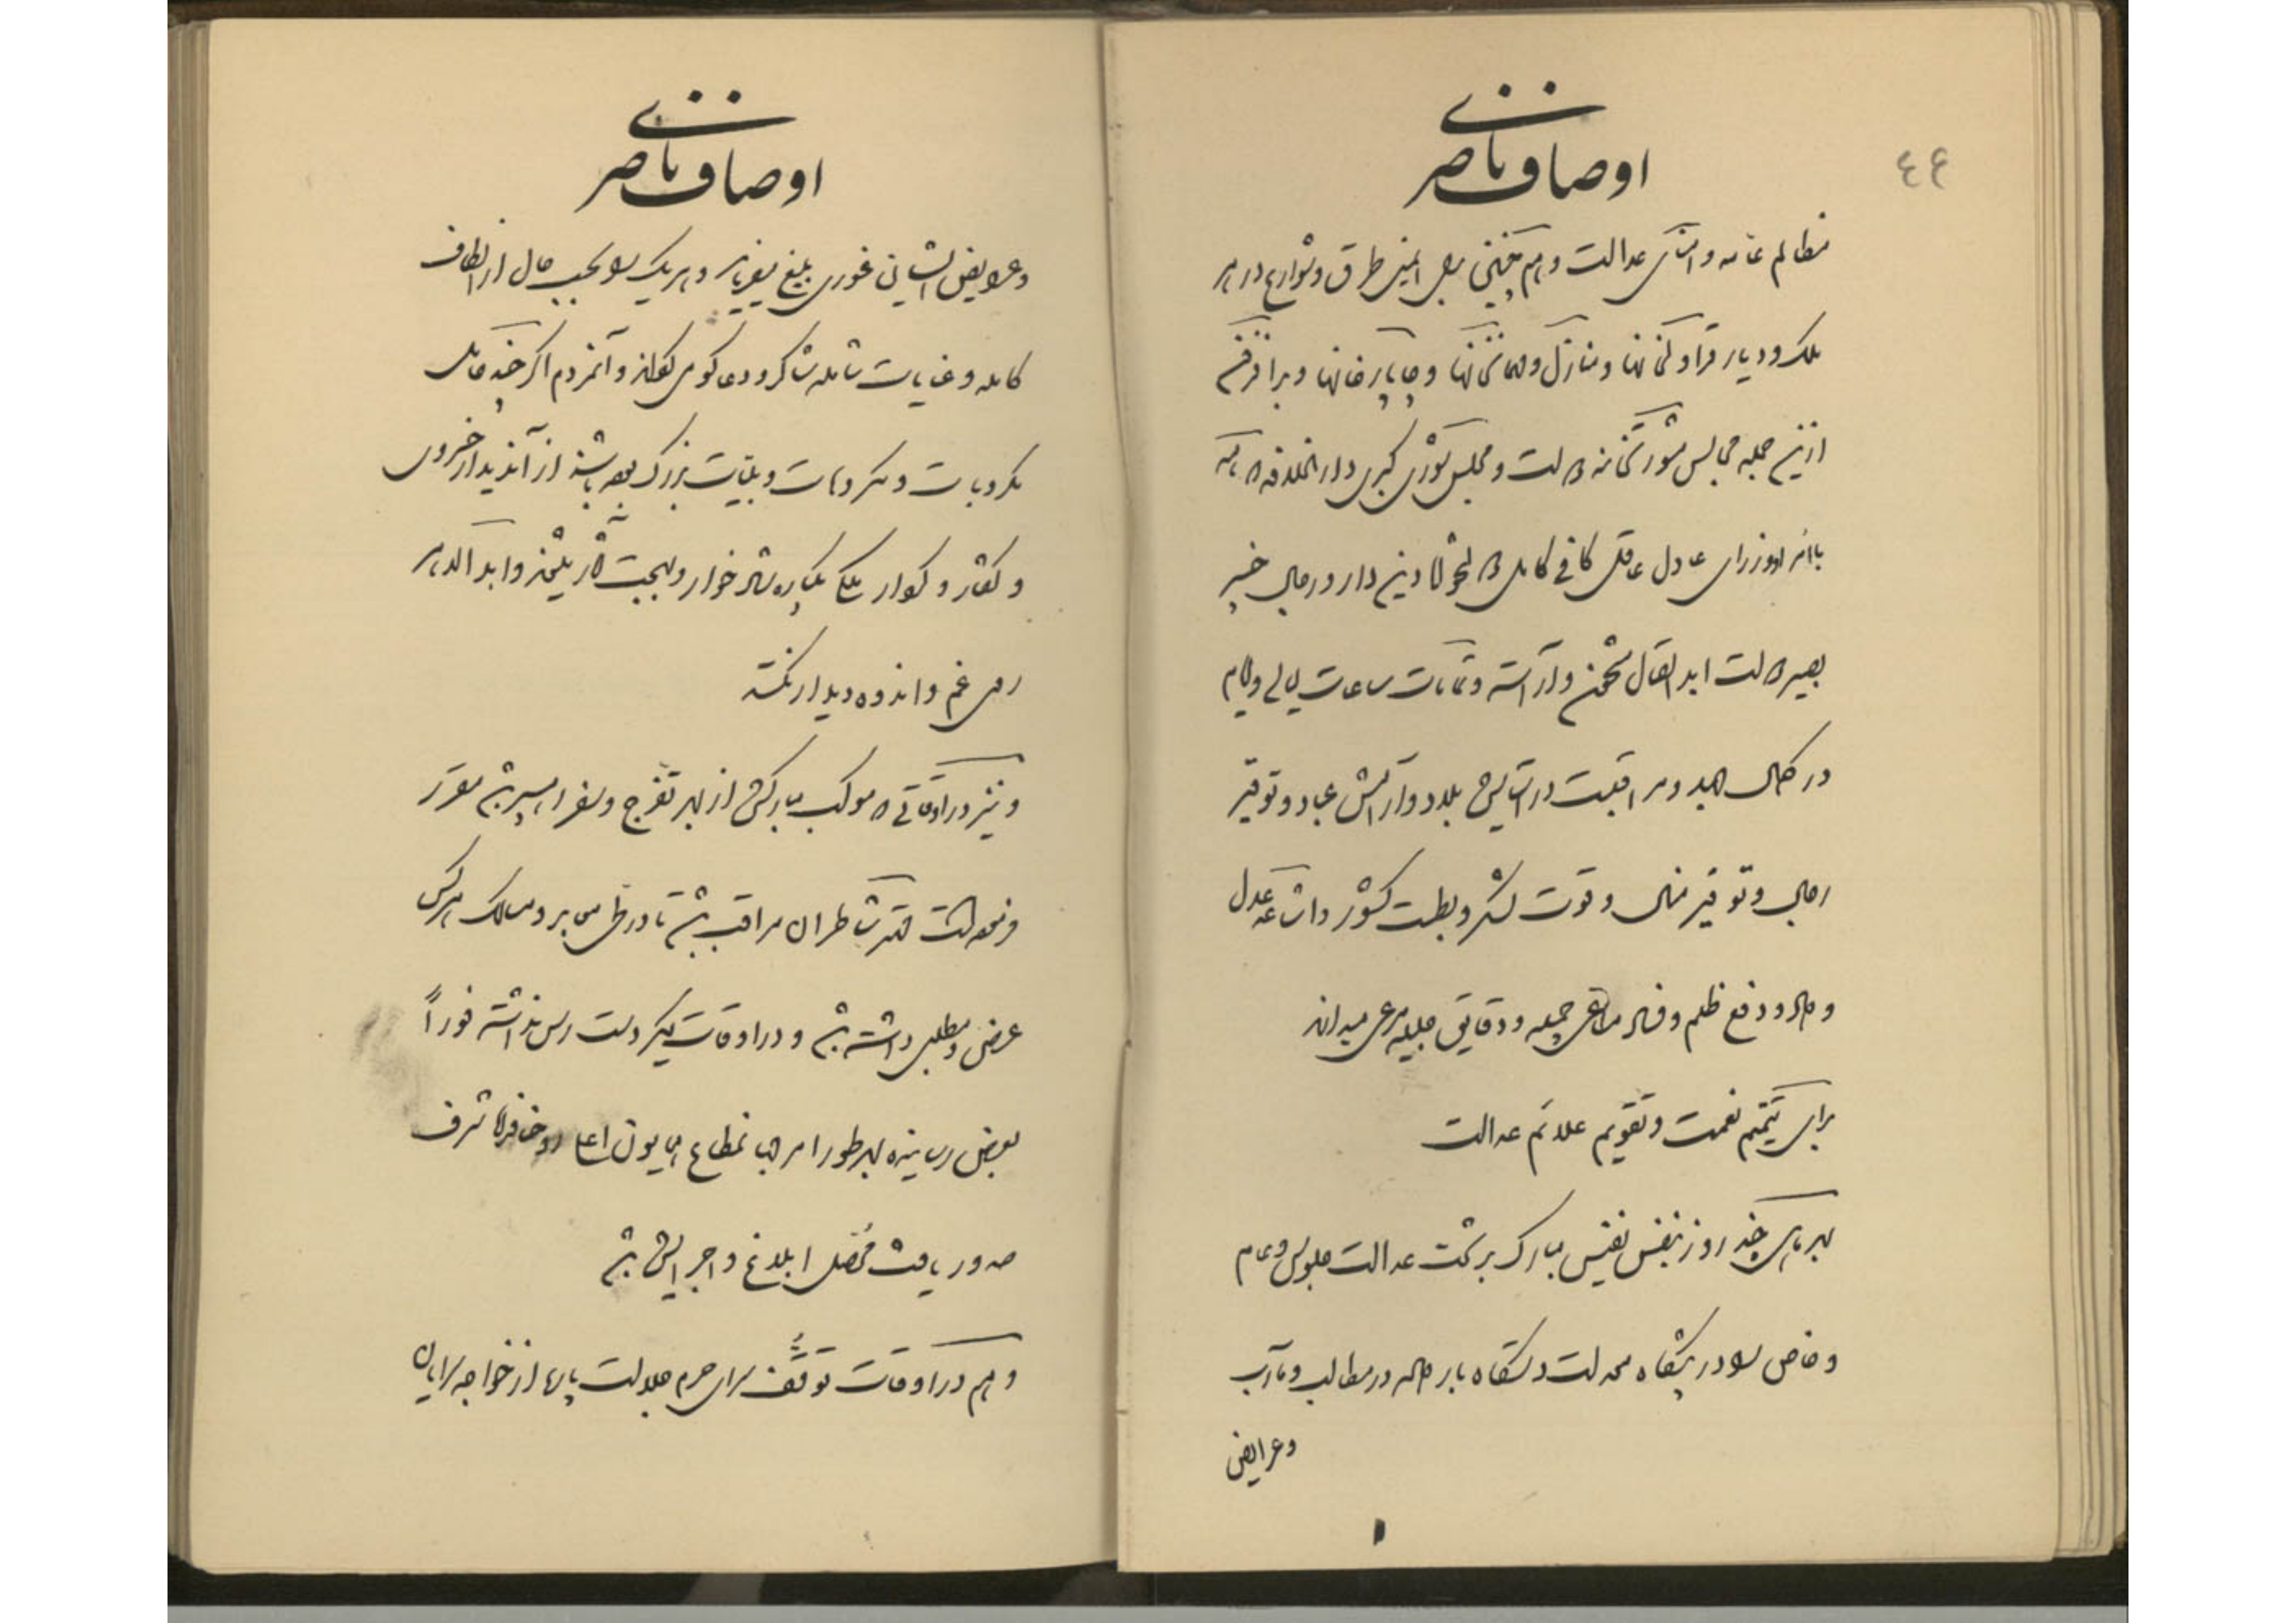 ٤٤
اوصاف ناصری
مظالم عامه و امنای عدالت و همچنین بجهة ایمنی طرق و شوارع در هر
ملک و دیار قراولخانها و منازل و مهمانخانها و چاپارخانها و
ازین جمله مجالس مشورتخانه دولت و مجلس شورای کبری دار الخلافه
وزرای عادل عاقل کافی کامل دین دار و رجال خبیر
بصیر دولت ابد اتصال مشحون و آراسته و تمامت ساعات لیالی و ایام
در کمال جهد و مراقبت در آسایش بلاد و آرامش عباد و توقیر
رجال و توفیر منال و قوت لشکر و بسطت کشور و اشاعه عدل
و داد و دفع ظلم و فساد مساعی جمیله و دقایق جلیله مرعی میدارند
برای تتمیم نعمت و تقویم علائم عدالت
هر ماهی چند روز بنفس نفیس مبارک بر تخت عدالت جلوس و عام
و خاص را در پیشگاه معدلت دستگاه بار داده در مطالب و مآرب
و عرایض
اوصاف ناصری
و عرایض ایشان غوری بلیغ میفرمایند و هر یک را بحسب حال از الطاف
کامله و عنایات شامله شاکر و دعاگوی و آنمردم اگر چند حامل
مکروبات و مکروهات و بلیات بزرگ بوده باشند از آندیدار خسروی
و گفتار و کردار ملکی یکباره شاد خوار و ابد الدهر
روی غم و اندوه دیدار نکنند
و نیز در اوقاتی که موکب مبارکش از بهر تفرج و سفر راه سپر باشد مقرر
فرموده است شاطران مراقب باشند تا در طی معابر و مسالک هر کس
عرض و مطلبی داشته باشد و در اوقات دیگر دست رس نداشته فوراً
بعرض رسانیده بهر طور امر جهانمطاع همایون اعلی شرف
صدور یافت مفصل ابلاغ و اجرا باشد
و هم در اوقات توقف سرای حرم جلالت پاره از خواجه سرایان